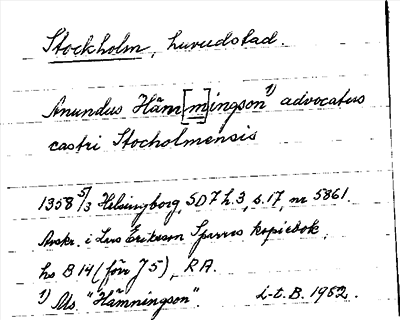 Stockholm, huvudstad.
Anundus Häm[m]ingson¹⁾ advocatus
castri Stocholmensis
1358 5/3 Helsingborg, SD 7 h. 3, s. 17, nr 5861.
Avskr. i Lars Eriksson Sparres kopiebok,
hs B 14 (förr J 5), RA.
¹⁾ Ms. "Hämningson". L-t. B. 1982.